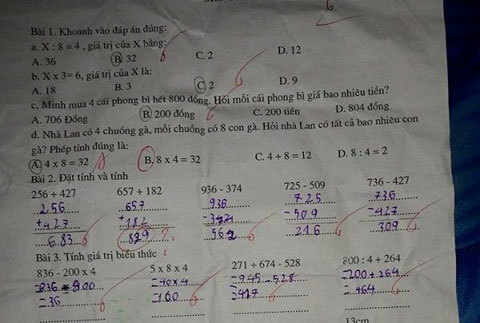 Bài 1. Khoanh vào đáp án đúng:
a. X : 8 = 4 , giá trị của X bằng:
A. 36 B. 32 C. 2 D. 12
b. X x 3= 6, giá trị của X là:
A. 18 B. 3 C. 2 D. 9
c, Minh mua 4 cái phong bì hết 800 đồng. Hỏi mỗi cái phong bì giá bao nhiêu tiền?
A. 706 Đồng B. 200 đồng C. 200 tiền D. 804 đồng
d. Nhà Lan có 4 chuồng gà, mỗi chuồng có 8 con gà. Hỏi nhà Lan có tất cả bao nhiêu con
gà? Phép tính đúng là:
A, 4 x 8 = 32 B, 8 x 4 = 32 C. 4 + 8 = 12 D. 8 : 4 = 2
Bài 2. Đặt tính và tính
256 + 427 657 + 182 936 - 374 725 - 509 736 - 427
256 657 936 725 736
+ 427 + 182 - 374 - 509 - 427
683 562 216 309
Bài 3. Tính giá trị biểu thức
836 - 200 x 4 5 x 8 x 4 271 + 674 - 528 800 : 4 + 264
=836 - 800 =40 x 4 =945 - 528 =200 + 264
=36 =160 =417 =464
13cm